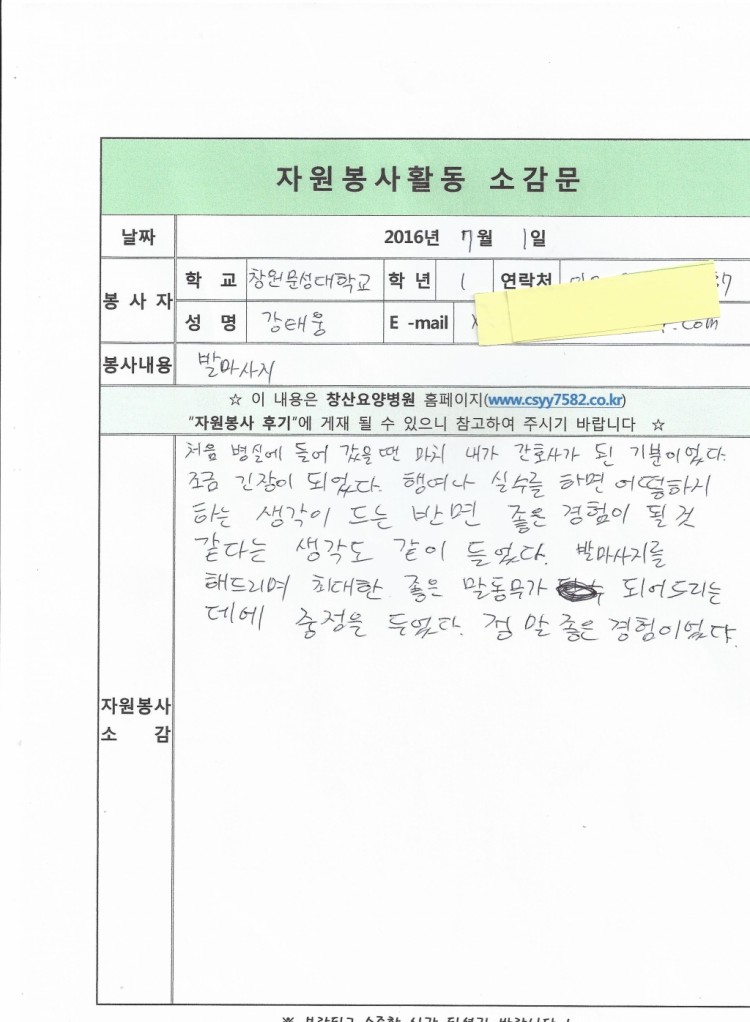 자원봉사활동 소감문
날짜 2016년 7월 1일
봉사자 학교 창원문성대학교 학년 1 연락처
성명 강태웅 E-mail .com
봉사내용 발마사지
☆ 이 내용은 창산요양병원 홈페이지(www.csyy7582.co.kr)
"자원봉사 후기"에 게재 될 수 있으니 참고하여 주시기 바랍니다 ☆
자원봉사 소감
처음 병실에 들어 갔을땐 마치 내가 간호사가 된 기분이었다.
조금 긴장이 되었다. 행여나 실수를 하면 어떻하지
하는 생각이 드는 반면 좋은 경험이 될 것
같다는 생각도 같이 들었다. 발마사지를
해드리며 최대한 좋은 말동무가 되어드리는
데에 중점을 두었다. 정말 좋은 경험이었다.